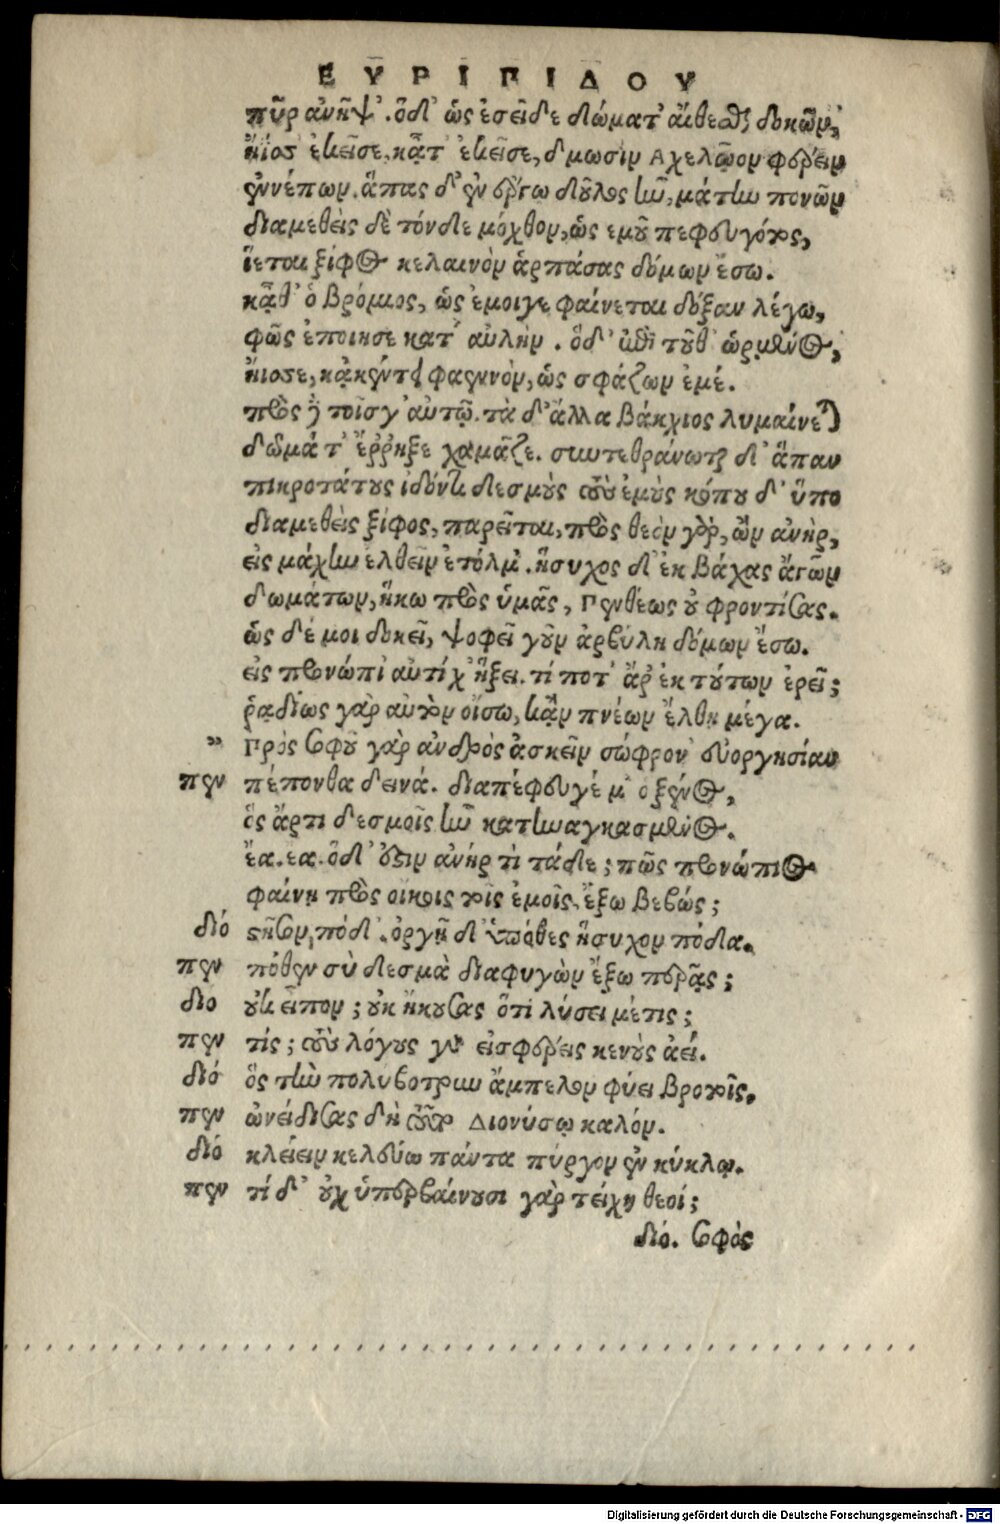 ΕΥΡΙΠΙΔΟΥ
πῦρ ἀνῆψ'. ὅδ' ὡς ἐσεῖδε δώματ' αἴθεσθαι δοκῶν,
ᾔσσ' ἐκεῖσε, κᾆτ' ἐκεῖσε, δμωσὶν Ἀχελῷον φέρειν
ἐννέπων. ἅπας δ' ἐν ἔργῳ δοῦλος ἦν, μάτην πονῶν
διαμεθεὶς δὲ τόνδε μόχθον, ὡς ἐμοῦ πεφευγότος,
ἵεται ξίφος κελαινὸν ἁρπάσας δόμων ἔσω.
κᾆθ' ὁ Βρόμιος, ὡς ἔμοιγε φαίνεται δόξαν λέγω,
φῶς ἐποίησε κατ' αὐλήν. ὅδ' ἐπὶ τοῦθ' ὡρμημένος,
ᾔσσε, κἀκέντει φαεννὸν, ὡς σφάζων ἐμέ.
πρὸς δὲ τοῖσγ' αὐτῷ. τὰ δ' ἄλλα Βάκχιος λυμαίνεται
δώματ' ἔρρηξε χαμᾶζε. συντεθράνωται δ' ἅπαν
πικροτάτους ἰδόντι δεσμοὺς τοὺς ἐμοὺς κόπου δ' ὕπο
διαμεθεὶς ξίφος, παρεῖται, πρὸς θεὸν γὰρ, ὢν ἀνὴρ,
εἰς μάχην ἐλθεῖν ἐτόλμ'. ἥσυχος δ' ἐκ βάχας ἄγων
δωμάτων, ἥκω πρὸς ὑμᾶς, Πενθέως οὐ φροντίσας.
ὡς δέ μοι δοκεῖ, ψοφεῖ γοῦν ἀρβύλη δόμων ἔσω.
εἰς προνώπι αὐτίχ' ἥξει. τί ποτ' ἄρ' ἐκ τούτων ἐρεῖ;
ῥᾳδίως γὰρ αὐτὸν οἴσω, κἂν πνέων ἔλθῃ μέγα.
” Πρὸς σοφοῦ γὰρ ἀνδρὸς ἀσκεῖν σώφρον' εὐοργησίαν
πεν πέπονθα δεινά. διαπέφευγέ μ' ὁ ξένος,
ὃς ἄρτι δεσμοῖς ἦν κατηναγκασμένος.
ἔα. ἔα. ὅδ' ἐστὶν ἀνήρ τὶ τάδε; πῶς προνώπιος
φαίνῃ πρὸς οἴκοις τοῖς ἐμοῖς, ἔξω βεβώς;
διό στῆσον, πόδ'. ὀργῇ δ' ὑπόθες ἥσυχον πόδα.
πεν πόθεν σὺ δεσμὰ διαφυγὼν ἔξω περᾷς;
διο οὐκ εἶπον; οὐκ ἤκουσας ὅτι λύσει μέτις;
πεν τίς; τοὺς λόγους γὰρ εἰσφέρεις κενοὺς ἀεί.
διό ὃς τὴν πολύβοτρυν ἄμπελον φύει βροτοῖς.
πεν ὠνείδισας δὴ τοῦτο Διονύσῳ καλόν.
διό κλείειν κελεύω πάντα πύργον ἐν κύκλῳ.
πεν τί δ' οὐχ ὑπερβαίνουσι γὰρ τείχη θεοί;
διό. σοφὸς
Digitalisierung gefördert durch die Deutsche Forschungsgemeinschaft - DFG